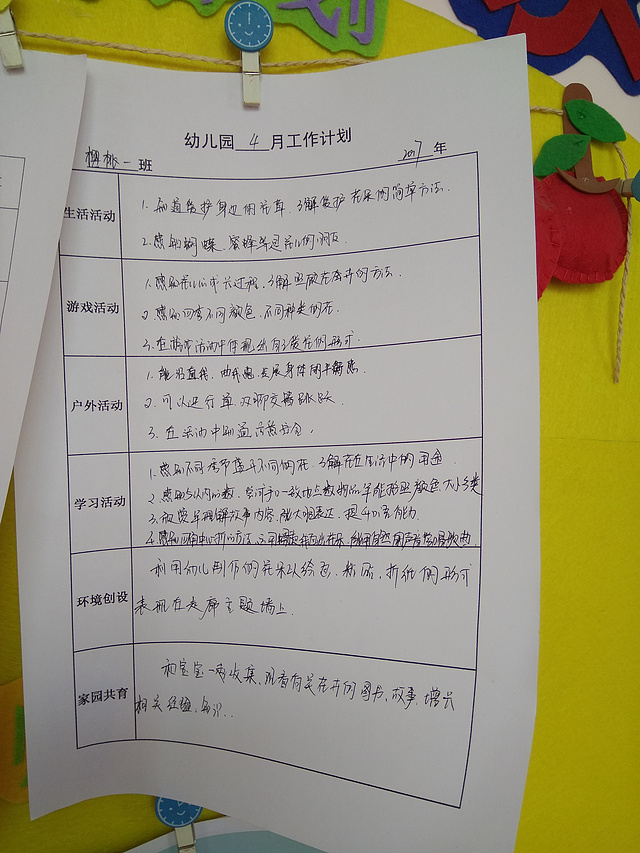 划
幼儿园 4 月工作计划
樱桃一 班 2017 年
生活活动
1. 知道爱护身边的花草,了解爱护花朵的简单方法.
2. 感知蝴蝶、蜜蜂等是花儿的朋友.
游戏活动
1. 感知花儿的成长过程,了解照顾花卉的方法.
2. 感知四季不同颜色、不同种类的花.
3. 在游戏活动中体现出自己装花的形式.
户外活动
1. 能沿直线、曲线走,发展身体的平衡感.
2. 可以进行单双脚交替跳跃.
3. 在活动中知道注意安全.
学习活动
1. 感知不同季节盛开不同的花,了解花在生活中的用途.
2. 感知5以内的数,尝试手口一致地点数物品并能按照颜色、大小分类
3. 欣赏并理解故事内容,能大胆表达,提高语言能力.
4.
环境创设
利用幼儿制作的花朵以绘画、粘贴、折纸的形式
表现在走廊主题墙上.
家园共育
和宝宝一起收集、观看有关花卉的图书、故事,增长
相关经验、知识..